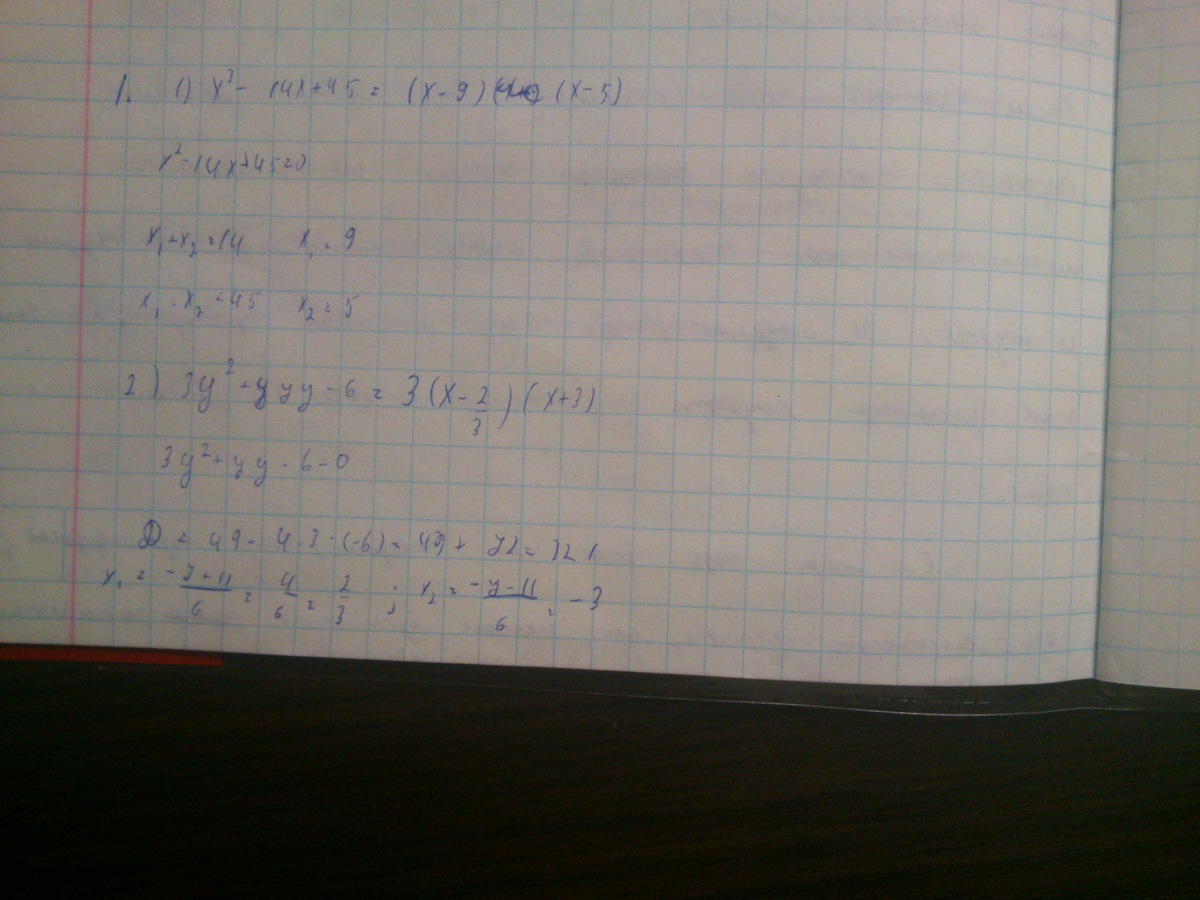 1. 1) x² - 14x+45 = (x-9) (x-5)
x²-14x+45=0
x₁+x₂=14 x₁=9
x₁·x₂=45 x₂=5
2) 3y²+7y-6 = 3(x-2/3)(x+3)
3y²+7y-6=0
D = 49-4·3·(-6)=49+72=121
x₁ = -7+11/6 = 4/6 = 2/3 ; x₂ = -7-11/6 = -3